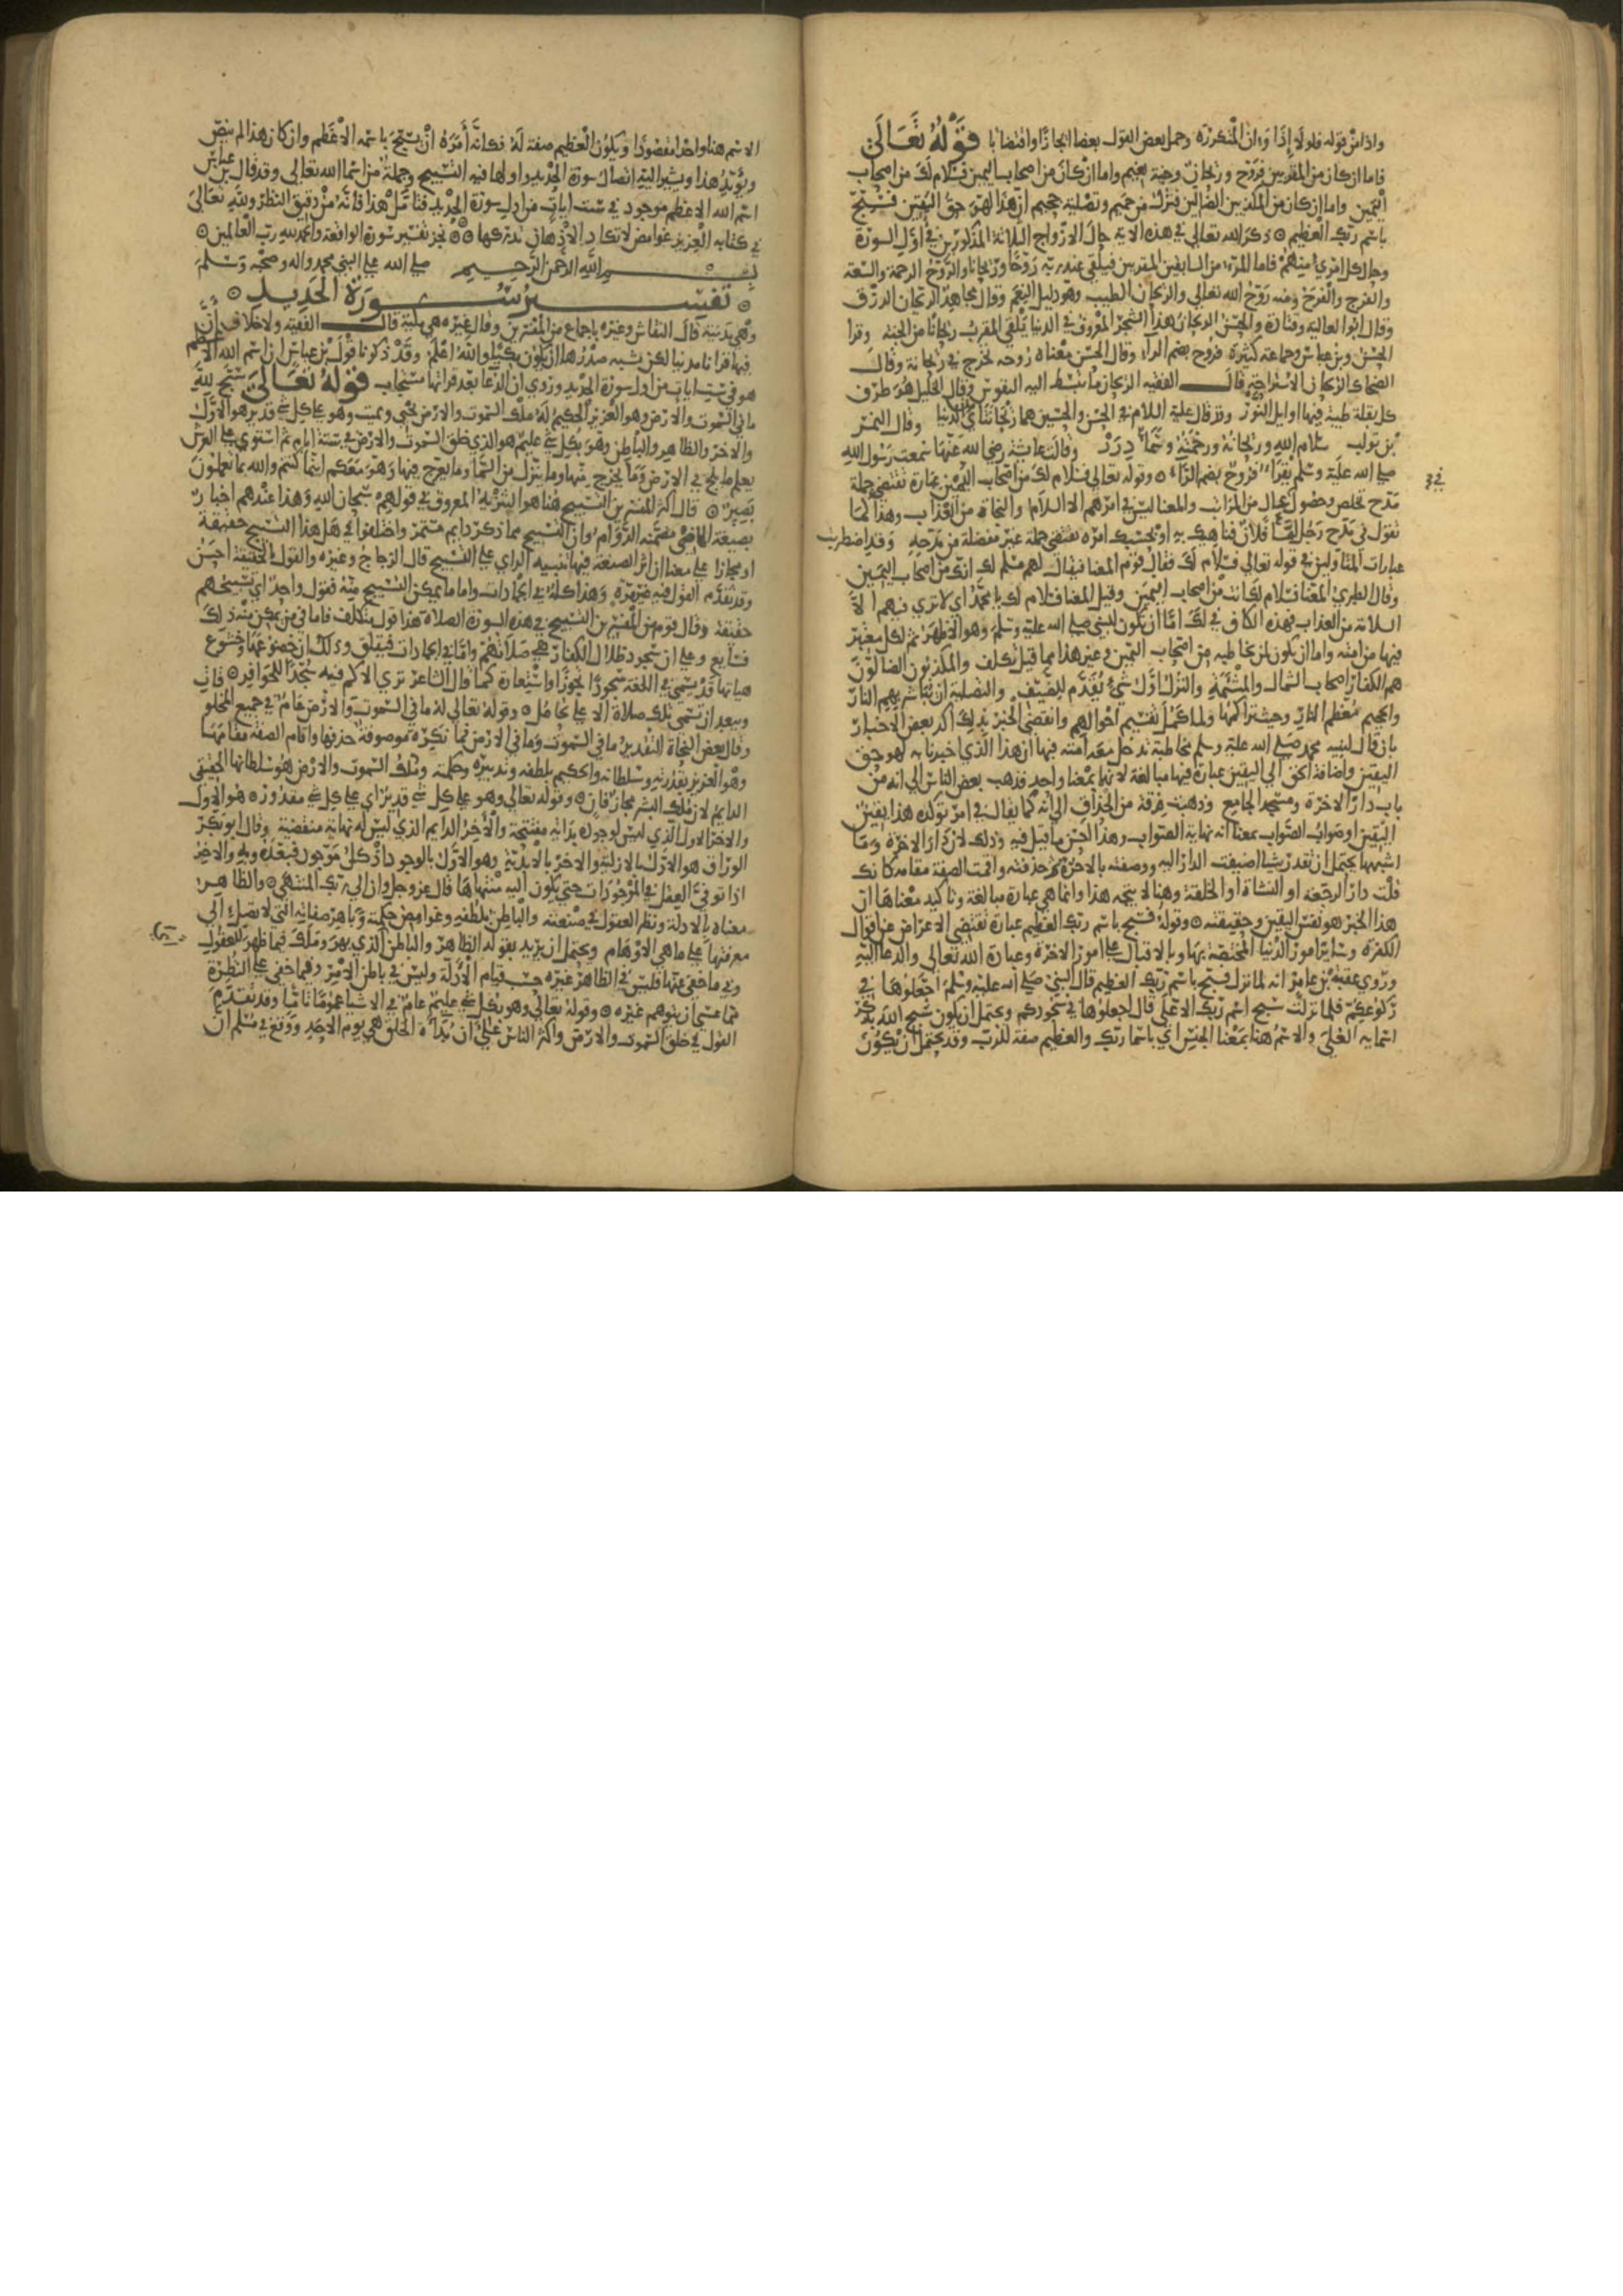 واذا من قوله فلولا إذا وان المتكررة وحمل بعض القول بعضا ايجازا واقتضابا قوله تعالى
فاما ان كان من المقربين فروح وريحان وجنة نعيم واما ان كان من اصحاب اليمين فسلام لك من اصحاب
اليمين واما ان كان من المكذبين الضالين فنزل من حميم وتصلية جحيم ان هذا لهو حق اليقين فسبح
باسم ربك العظيم ۞ ذكر الله تعالى في هذه الاية حال الازواج الثلاثة المذكورين في اول السورة
وحال كل امرئ منهم فاما المرء من السابقين المقربين فيلقى عند ربه روحا وريحانا والروح الرحمة والسعة
والفرج والفرح ومنه روح الله تعالى والريحان الطيب وهو دليل النعم وقال مجاهد الريحان الرزق
وقال ابو العالية وقتادة والحسن الريحان هذا الشجر المعروف في الدنيا يلقى المقرب ريحانا من الجنة وقرا
الحسن وبن عباس وجماعة كثيرة فروح بضم الراء وقال الحسن معناه روحه تخرج في ريحانة وقال
الضحاك الريحان الاستراحة قال الفقيه الريحان ما تنبسط اليه النفوس وقال الخليل هو طرف
كل بقلة طيبة فيها اوايل النور وقد قال عليه السلام في الحسن والحسين هما ريحانتاي من الدنيا وقال النمر
بن تولب سلام الاله وريحانه ورحمته وسماء درر وقالت عايشة رضي الله عنها سمعت رسول الله
صلى الله عليه وسلم يقرا فروح بضم الراء ۞ وقوله تعالى فسلام لك من اصحاب اليمين عبارة تقتضي جملة
مدح تخلص وحصول عال من المراتب والمعنا ليس في امرهم الا السلام والنجاة من العذاب وهذا كما
تقول في مدح رجل اما فلان فناهيك به او بحسبك امره تقتضي جملة غير مفصلة من مدحه وقد اضطربت
عبارات المتاولين في قوله تعالى فسلام لك فقال قوم المعنا فيقال لهم مسلم لك انك من اصحاب اليمين
وقال الطبري المعنا فسلام لك انت من اصحاب اليمين وقيل المعنا فسلام لك يا محمد اي لا ترى فيهم الا
السلامة من العذاب فهذه الكاف في لك اما ان تكون للنبي صلى الله عليه وسلم وهو الاظهر ثم لكل معتبر
فيها من امته واما ان يكون لمن يخاطبه من اصحاب اليمين وغير هذا مما قيل تكلف والمكذبون الضالون
هم الكفار اصحاب الشمال والمشئمة والنزل اول شيء يقدم للضيف والتصلية ان تباشر بهم النار
والجحيم معظم النار وحيث تراكمها ولما كمل تقسيم احوالهم وانقضى الخبر بذلك اكد بعض الاخبار
بان قال لنبيه محمد صلى الله عليه وسلم مخاطبة تدخل معه امته فيها ان هذا الذي اخبرنا به لهو حق
اليقين واضافة الحق الى اليقين عبارة فيها مبالغة لانها بمعنا واحد فذهب بعض الناس الى انه من
باب دار الاخرة ومسجد الجامع وذهبت فرقة من الحذاق الى انه كما يقال في امر توكده هذا يقين
اليقين او صواب الصواب بمعنا انه نهاية الصواب وهذا احسن ما قيل فيه وذلك لان دار الاخرة وما
اشبهها يحتمل ان تقدر شيا اضيفت الدار اليه ووصفته بالاخرة ثم حذفته واقمت الصفة مقامه كانك
قلت دار الرجعة او النشاة او الخلقة وهنا لا يتجه هذا وانما هي عبارة مبالغة وتاكيد معناها ان
هذا الخبر هو نفس اليقين وحقيقته ۞ وقوله فسبح باسم ربك العظيم عبارة تقتضي الاعراض عن اقوال
الكفرة وساير امور الدنيا المختصة بها وبالاقبال على امور الاخرة وعبادة الله تعالى والدعا اليه
وروى عقبة بن عامر انه لما نزل فسبح باسم ربك العظيم قال النبي صلى الله عليه وسلم اجعلوها في
ركوعكم فلما نزلت سبح اسم ربك الاعلى قال اجعلوها في سجودكم ويحتمل ان يكون سبح الله بذكر
اسمايه العلى والاسم هنا بمعنا الجنس اي باسما ربك والعظيم صفة للرب وقد يحتمل ان يكون
الاسم هنا واحدا مقصودا ويكون العظيم صفة له فكانه أمره ان يسبح باسمه الاعظم وان كان هذا لم ينص
ويؤيد هذا ويشير اليه اتصال سورة الحديد واولها فيه التسبيح وجملة من اسما الله تعالى وقد قال بن عباس
اسم الله الاعظم موجود في ست ايات من اول سورة الحديد فتامل هذا فانه من دقيق النظر ولله تعالى
في كتابه العزيز غوامض لا تكاد الاذهان تدركها ۞۞ نجز تفسير سورة الواقعة والحمد لله رب العالمين ۞
بسم الله الرحمن الرحيم صلى الله على النبي محمد واله وصحبه وسلم
۞ تفسير سورة الحديد ۞
وهي مدنية قال النقاش وغيره باجماع من المفسرين وقال غيره هي مكية قال الفقيه ولا خلاف أن
فيها قرانا مدنيا لكن يشبه صدرها ان يكون مكيا والله اعلم وقد ذكرنا قول بن عباس ان اسم الله الاعظم
هو في ست ايات من اول سورة الحديد وروي ان الدعا بعد قراتها مستجاب قوله تعالى سبح لله
ما في السموت والارض وهو العزيز الحكيم له ملك السموت والارض يحيي ويميت وهو على كل شي قدير هو الاول
والاخر والظاهر والباطن وهو بكل شي عليم هو الذي خلق السموت والارض في ستة ايام ثم استوى على العرش
يعلم ما يلج في الارض وما يخرج منها وما ينزل من السما وما يعرج فيها وهو معكم اينما كنتم والله بما تعملون
بصير ۞ قال اكثر المفسرين التسبيح هنا هو التنزيه المعروف في قولهم سبحان الله وهذا عندهم اخبار
بصيغة الماضي مضمنه الدوام وان التسبيح مما ذكر دايم مستمر واختلفوا في هل هذا التسبيح حقيقة
او مجازا على معنا ان اثر الصنعة فيها تنبيه الراي على التسبيح قال الزجاج وغيره والقول بالحقيقة احسن
وقد تقدم القول فيه غير مرة وهذا كله في الجمادات واما ما يمكن التسبيح منه فقول واحد اي تسبيحهم
حقيقة وقال قوم من المفسرين التسبيح في هذه السورة الصلاة هذا قول متكلف فاما في من يمكن منه ذلك
فسايغ وعلى ان سجود ظلال الكفار هي صلاتهم واما في الجمادات فيقلق وذلك ان خضوعها وخشوع
هياتها قد يسمى في اللغة سجودا تجوزا واستعارة كما قال الشاعر ترى الاكم فيه سجدا للحوافر ۞ فانه
ويبعد ان تسمى تلك صلاة الا على تحامل ۞ وقوله تعالى له ما في السموت والارض عام في جميع المخلو
وقال بعض النحاة التقدير ما في السموت وما في الارض فما نكرة موصوفة حذفها واقام الصفة مقامها
وهو العزيز بقدرته وسلطانه والحكيم بلطفه وتدبيره وحكمته وملك السموت والارض هو سلطانها الحقيقي
الدايم لان ملك البشر مجاز فان ۞ وقوله تعالى وهو على كل شي قدير اي على كل شي مقدور ۞ هو الاول
والاخر الاول الذي ليس لوجوده بداية مفتتحة والاخر الدايم الذي ليس له نهاية منقضية وقال ابو بكر
الوراق هو الاول بالازلية والاخر بالابدية وهو الاول بالوجود اذ كل موجود فبعده وبه والاخر
اذا توقى العقل في الموجودات حتى يكون اليه منتهاها قال عز وجل وان الى ربك المنتهى ۞ والظاهر
معناه بالادلة ونظر العقول في صنعته والباطن بلطفه وغوامض حكمته وباهر صفاته التي لا تصل الى
معرفتها على ما هي الاوهام ويحتمل ان يريد بقوله الظاهر والباطن الذي بهر وملك فيما ظهر للعقول
وفي ما خفي عنها فليس في الظاهر غيره حسب قيام الادلة وليس في باطن الامر وفيما خفي على النظرة
مما عسى ان يتوهم غيره ۞ وقوله تعالى وهو بكل شي عليم عام في الاشيا عموما تاما وقد تقدم
القول في خلق السموت والارض واكثر الناس على أن بدأة الخلق هي يوم الاحد ووقع في مسلم ان